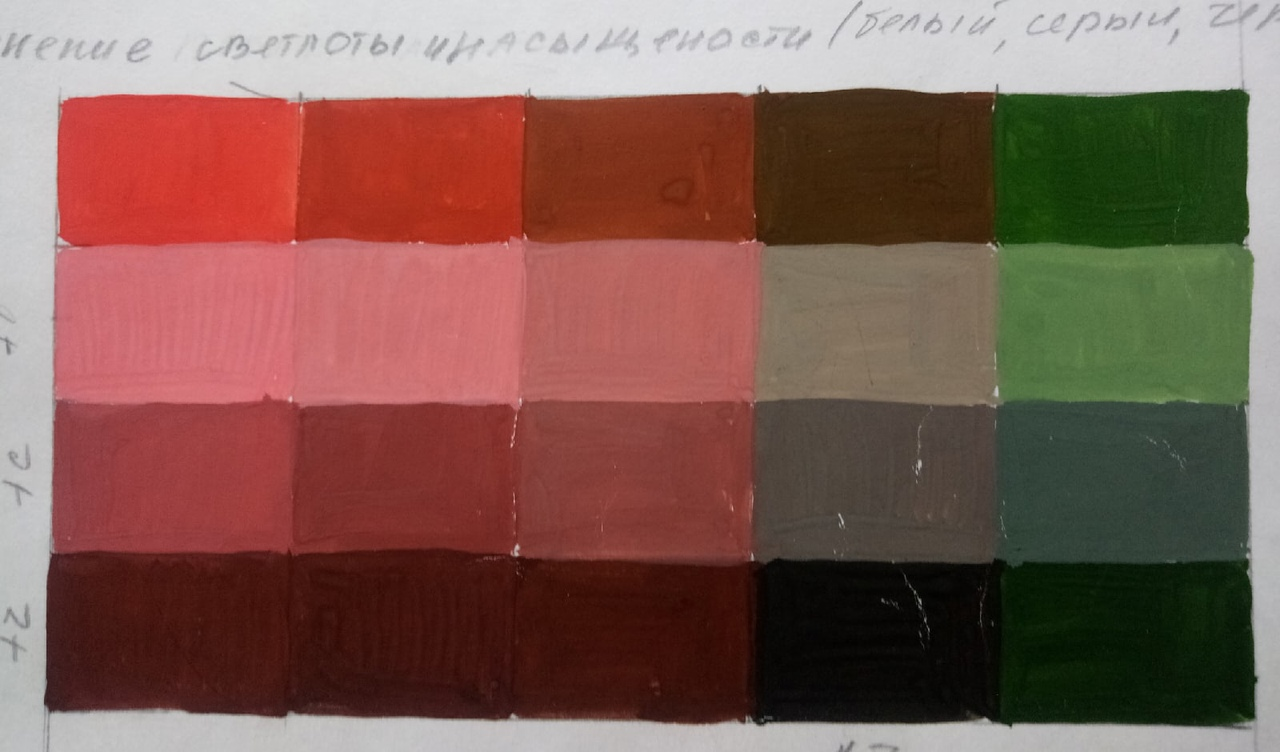 нение светлоты и насыщености (белый, серый, чер
+б
+с
+ч